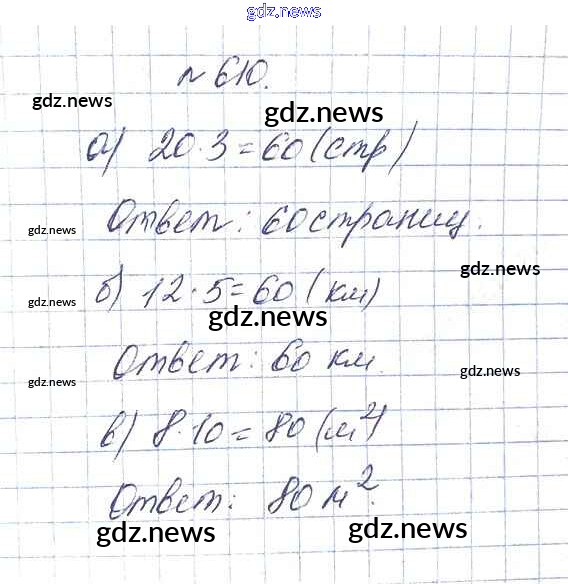 gdz.news
№ 610.
gdz.news
gdz.news
а) 20·3=60 (стр)
Ответ: 60 страниц.
gdz.news
gdz.news
б) 12·5=60 (км)
gdz.news
gdz.news
Ответ: 60 км.
gdz.news
gdz.news
в) 8·10=80 (м²)
Ответ: 80 м².
gdz.news
gdz.news